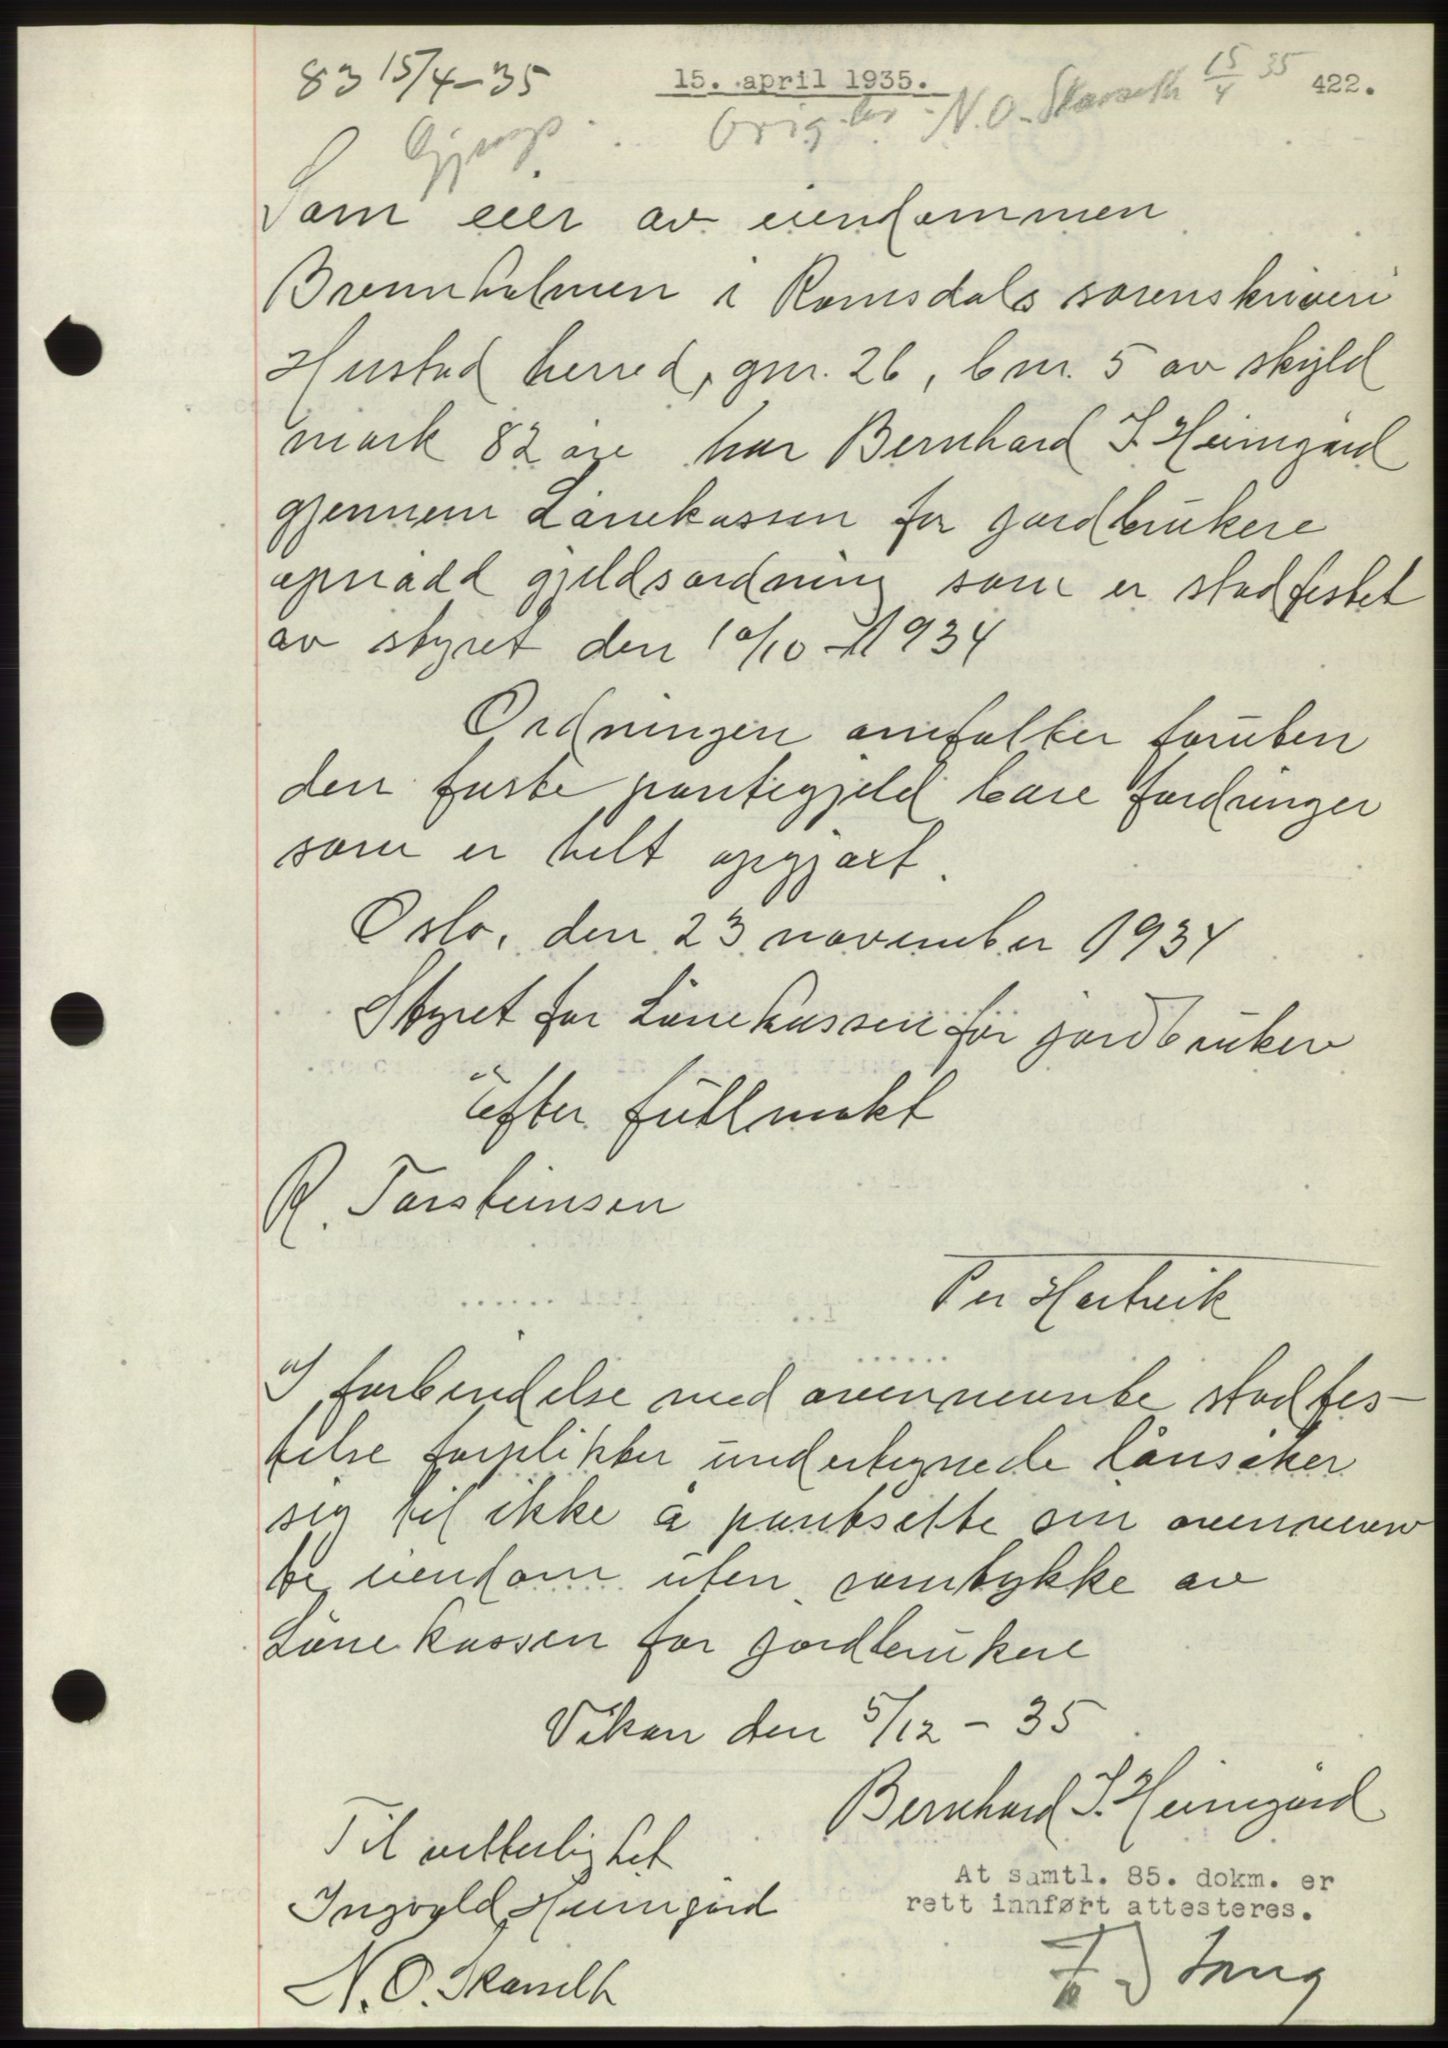 83 15/4-35
15. april 1935.
422.
Orig. lev. N.O. Skarseth 15/4 35
Som eier av eiendommen
Brennholmen i Romsdals sorenskriveri
Hustad herred, gnr. 26, bnr. 5 av skyld
mark 82 øre har Bernhard I. Heimgård
gjennem Lånekassen for jordbrukere
opnådd gjeldsordning som er stadfestet
av styret den 10/10 - 1934
Ordningen omfatter foruten
den faste pantegjeld bare fordringer
som er helt opgjort.
Oslo, den 23 november 1934
Styret for Lånekassen for jordbrukere
Efter fullmakt
R. Torsteinsen
Per Hartvik
I forbindelse med ovennevnte stadfes-
telse forplikter undertegnede lånsøker
sig til ikke å pantsette sin ovennevn
te eiendom uten samtykke av
Lånekassen for jordbrukere
Vikan den 5/12 - 35
Bernhard I. Heimgård
Til vitterlighet
Ingvald Heimgård
N. O. Skarseth
At samtl. 85. dokm. er
rett innført attesteres.